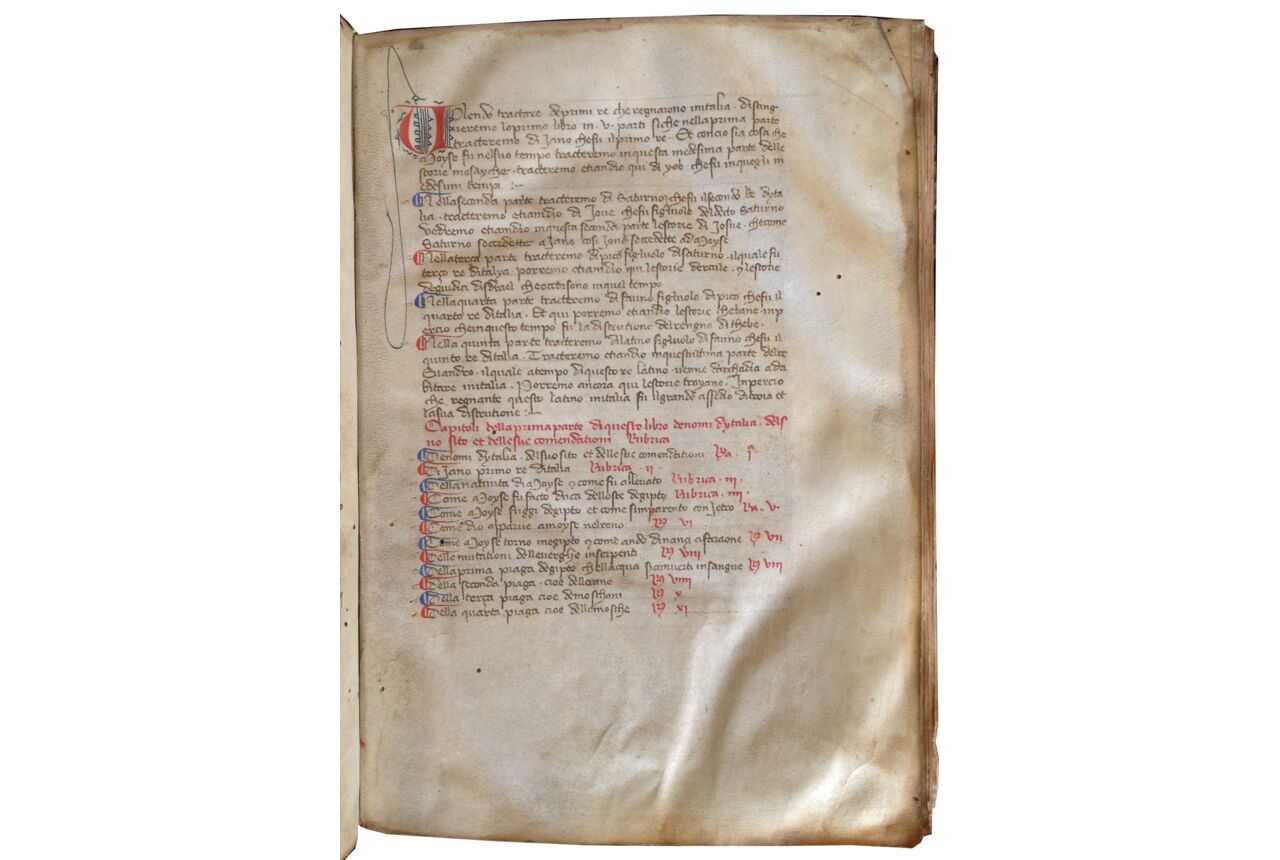 Volendo tractare de primi re che regnarono initalia . disting
ueremo loprimo libro in . v . parti siche nellaprima parte
tracteremo di Jano chefu ilprimo re . Et concio sia cosa che
Moyse fu nelsuo tempo tracteremo inquesta medesima parte delle
storie mosayche . tracteremo etiandio qui di yob chefu inquegli m
edesimi tempi :~
Nellaseconda parte tracteremo di Saturno chefu ilsecondo Re dyta
lia . tracteremo etiandio di Joue chefu figliuolo deldecto Saturno
vedremo etiandio inquesta seconda parte lestorie di Josue . checome
Saturno soccedette a Jano cosi Josue soccedette ad Moyse
Nellaterça parte tracteremo di pico figliuolo disaturno . ilquale fu
terço re ditalya porremo etiandio qui lestorie dercule . et lestorie
degiudici disdrael cheoccorsono inquel tempo
Nellaquarta parte tracteremo di fauno figliuolo di pico chefu il
quarto re ditalia . Et qui porremo etiandio lestorie thebane . inp
ercio cheinquesto tempo fu la distrutione delrengno di thebe .
Nella quinta parte tracteremo dilatino figliuolo di fauno chefu il
quinto re ditalia . Tracteremo etiandio inquestultima parte delre
Euandro . ilquale atempo diquesto re latino uenne darchadia ada
bitare initalia . Porremo ancora qui lestorie troyane . Inpercio
che regnante questo latino initalia fu ilgrande assedio ditroia et
lasua distrutione :~
Capitoli dellaprimaparte diquesto libro denomi dytalia . delsu
uo sito et dellesue comendationi Rubrica
Denomi dytalia . delsuo sito et dellesue comenditioni Ra . i .
Di Jano primo re ditalia Rubrica . ii .
Della natiuita di Moyse et come fu alleuato Rubrica . iii .
Come Moyse fu facto duca delloste degipto Rubrica . iiii .
Come Moyse fuggi degipto et come simparento con Jetro Ra . v .
Come dio apparue amoyse nelrouo Ra vi
Come Moyse torno inegipto et come ando dinanzi affaraone Ra vii
Delle mutationi delleuerghe inserpenti Ra viii
Dellaprima piaga degipto chellacqua siconuerti insangue Ra viii
Della seconda piaga . cioe dellerane Ra viiii
Della terça piaga cioe demoschoni Ra x
Della quarta piaga cioe dellemosche Ra xi